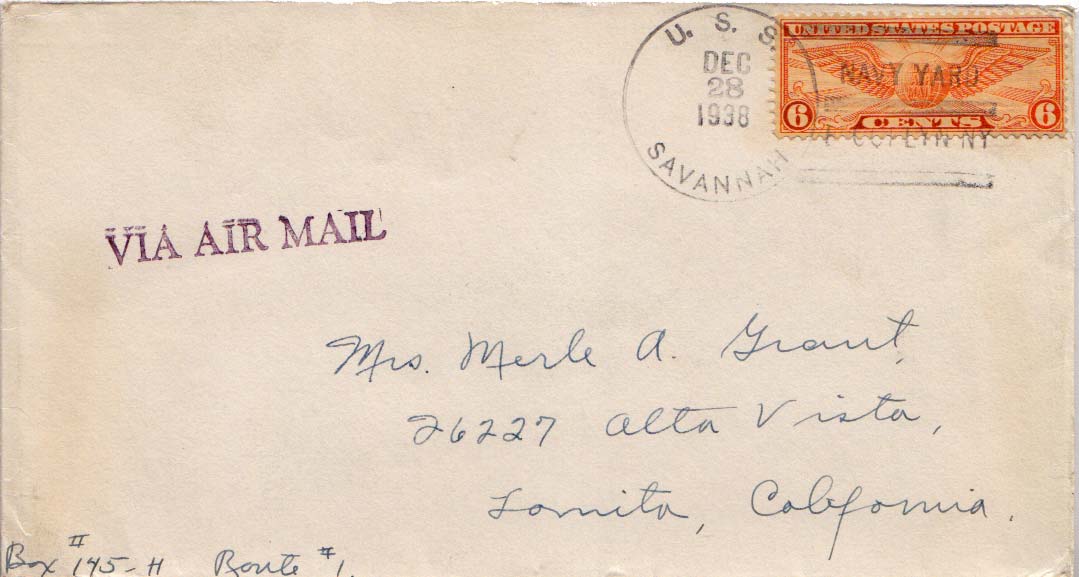 U. S. S.
DEC
28
1938
SAVANNAH
UNITED STATES POSTAGE
NAVY YARD
6 CENTS 6
NY
VIA AIR MAIL
Mrs. Merle A. Grant,
26227 Alta Vista,
Lomita, California.
Box # 145-H Route #1.